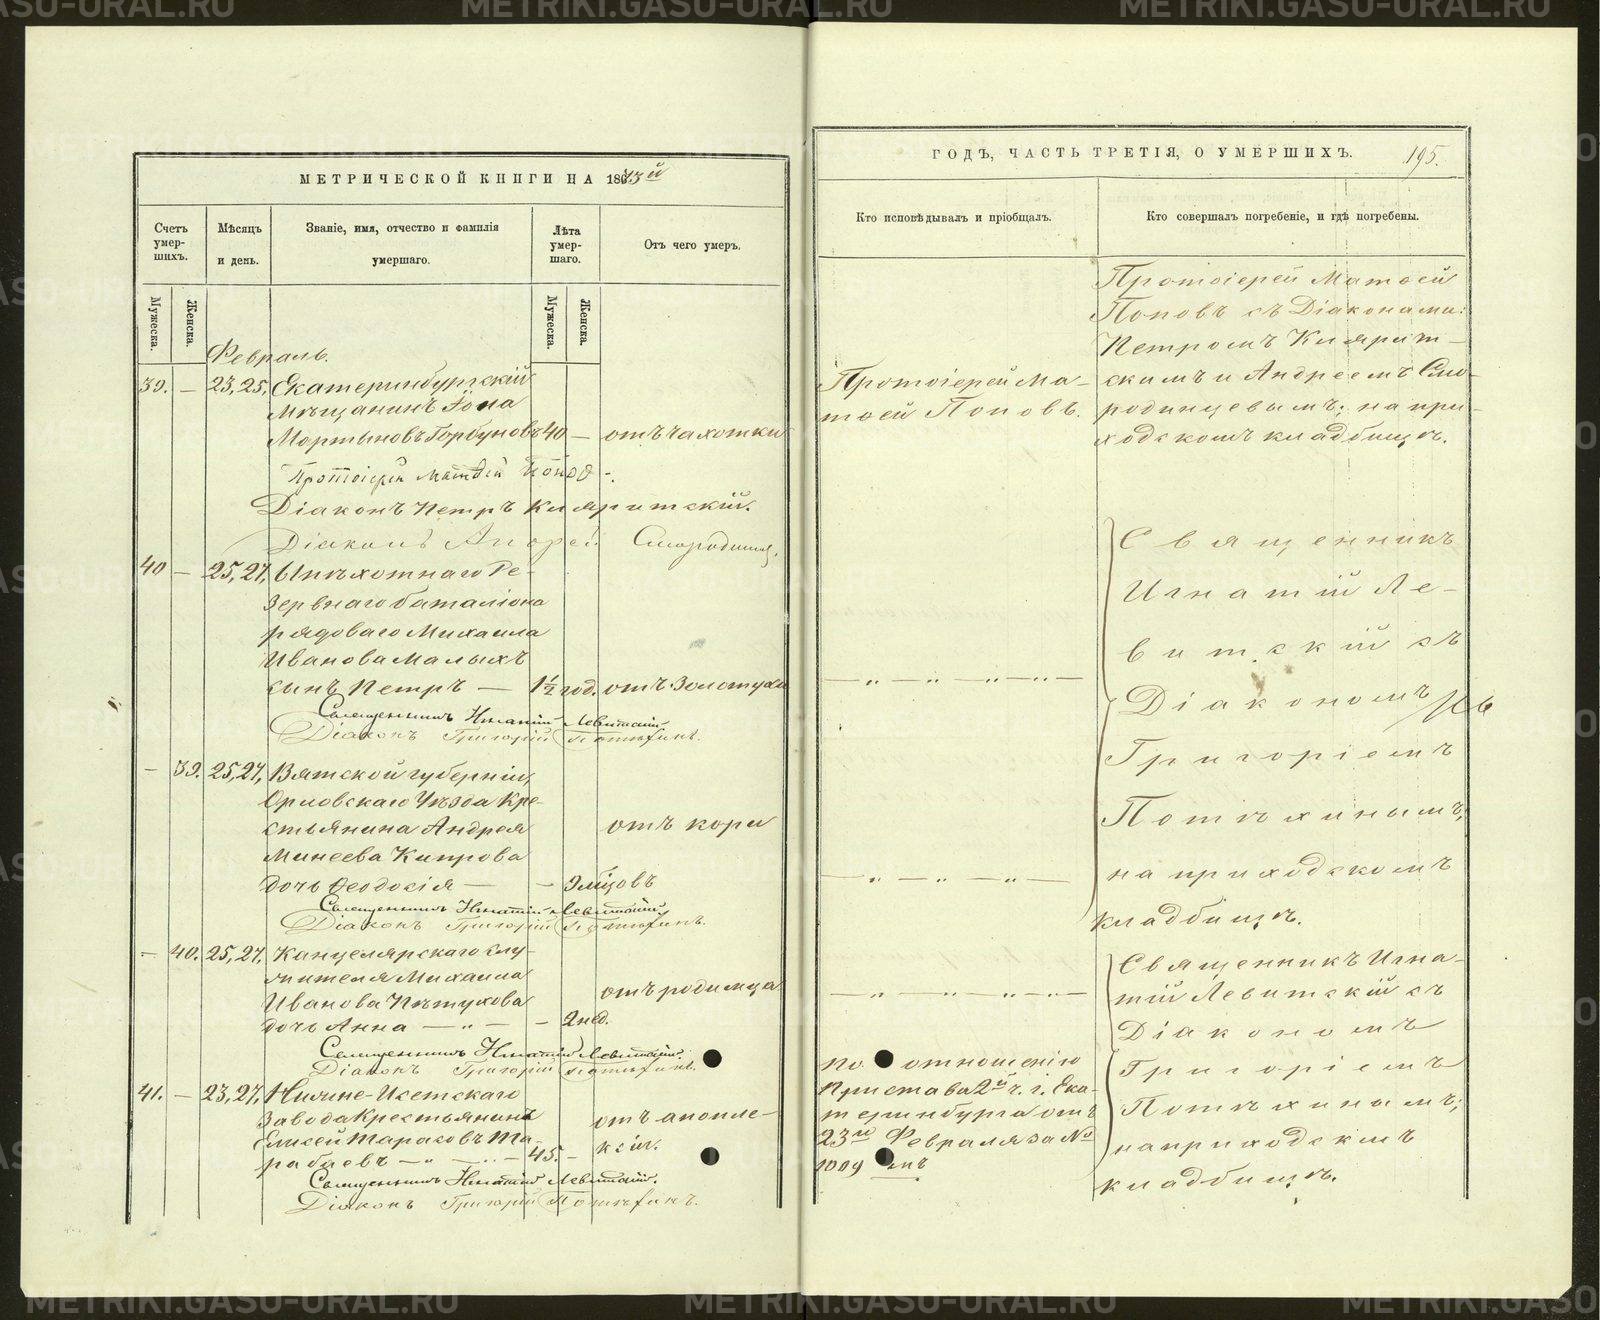 METRIKI.GASU-URAL.RU
МЕТРИЧЕСКОЙ КНИГИ НА 1873й
Счетъ умер-шихъ.
Мужеска.
Женска.
Мѣсяцъ и день.
Званіе, имя, отчество и фамилія умершаго.
Лѣта умер-шаго.
Мужеска.
Женска.
Отъ чего умеръ.
Февраль.
39. — 23, 25, Екатеринбургскій
Мѣщанинъ Іона
Мартыновъ Горбуновъ 40 — отъ чахотки
Протоіерей Матѳей Поповъ.
Діаконъ Петръ Кияритскій.
Діаконъ Андрей Смородинцевъ.
40 — 25, 27, Пѣхотнаго Ре-
зервнаго баталіона
рядоваго Михаила
Иванова Малыхъ
сынъ Петръ — 1½ год. отъ Золотухи
Священникъ Игнатій Левитскій.
Діаконъ Григорій Потѣхинъ.
— 39. 25, 27, Вятской губерніи,
Орловскаго Уѣзда Кре-
стьянина Андрея
отъ кори
Минеева Кипрова
дочь Ѳеодосія — — 9 мѣс.
Священникъ Игнатій Левитскій
Діаконъ Григорій Потѣхинъ.
— 40. 25, 27, Канцелярскаго слу-
жителя Михаила
Иванова Пѣтухова
отъ родимца
дочь Анна — „ — — 2 нед.
Священникъ Игнатій Левитскій.
Діаконъ Григорій Потѣхинъ.
41. — 23, 27, Нижне-Исетскаго
Завода Крестьянинъ
отъ апопле-
Елисей Тарасовъ Та-
ксіи.
рабаевъ — „ — „ — 45. —
Священникъ Игнатій Левитскій.
Діаконъ Григорій Потѣхинъ.
ГОДЪ, ЧАСТЬ ТРЕТІЯ, О УМЕРШИХЪ.
195.
Кто исповѣдывалъ и пріобщалъ.
Кто совершалъ погребеніе, и гдѣ погребены.
Протоіерей Ма-
тѳей Поповъ.
— „ — „ — „ — „ —
— „ — „ — „ —
— „ — „ — „ — „ —
по отношенію
Пристава 2й ч. г. Ека-
теринбурга отъ
23го Февраля за №
1009 мъ
Протоіерей Матѳей
Поповъ съ Діаконами:
Петромъ Киярит-
скимъ и Андреемъ Смо-
родинцевымъ; на при-
ходскомъ кладбищѣ.
Священникъ
Игнатій Ле-
витскій съ
Діакономъ
Григоріемъ
Потѣхинымъ;
на приходскомъ
кладбищѣ.
Священникъ Игна-
тій Левитскій съ
Діакономъ
Григоріемъ
Потѣхинымъ;
на приходскомъ
кладбищѣ.